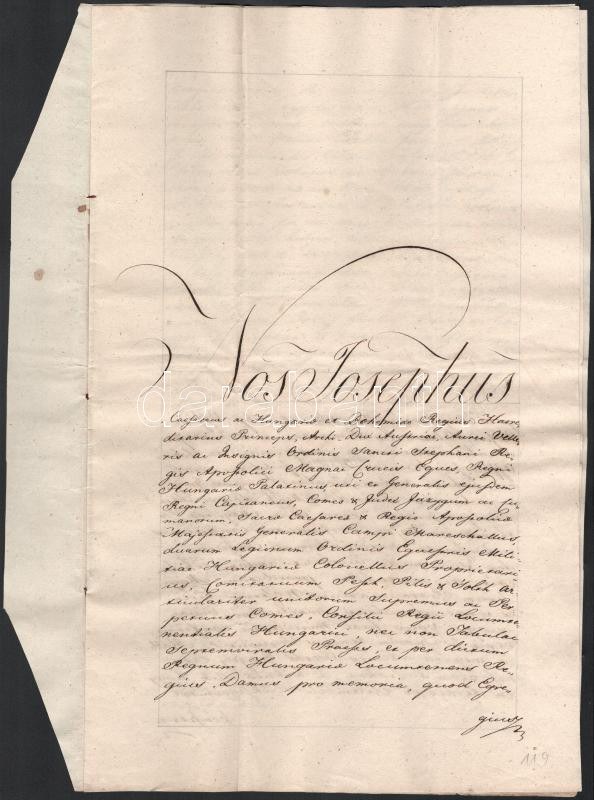 Nos Josephus
Caesareus ac Hungariae et Bohemiae Regius Haere
ditarius Princeps, Archi Dux Austriae, Aurei Velle
ris ac Insignis Ordinis Sancti Stephani Re-
gis Apostolici Magnae Crucis Eques, Regni
Hungariae Palatinus, uti et Generalis ejusdem
Regni Capitaneus, Comes & Judex Jazygum ac Cu
manorum, Sacrae Caesareae & Regio Apostolicae
Majestatis Generalis Campi Mareschallus,
duarum Legionum Ordinis Equestris Mili
tiae Hungaricae Colonellus Proprietari
us, Comitatuum Pesth, Pilis & Solth ar
ticulariter unitorum Supremus ac Per
petuus Comes, Consilii Regii Locumte
nentialis Hungarici, nec non Tabulae
Septemviralis Praeses, et per dictum
Regnum Hungariae Locumtenens Re-
gius. Damus pro memoria, quod Egre-
gius
119